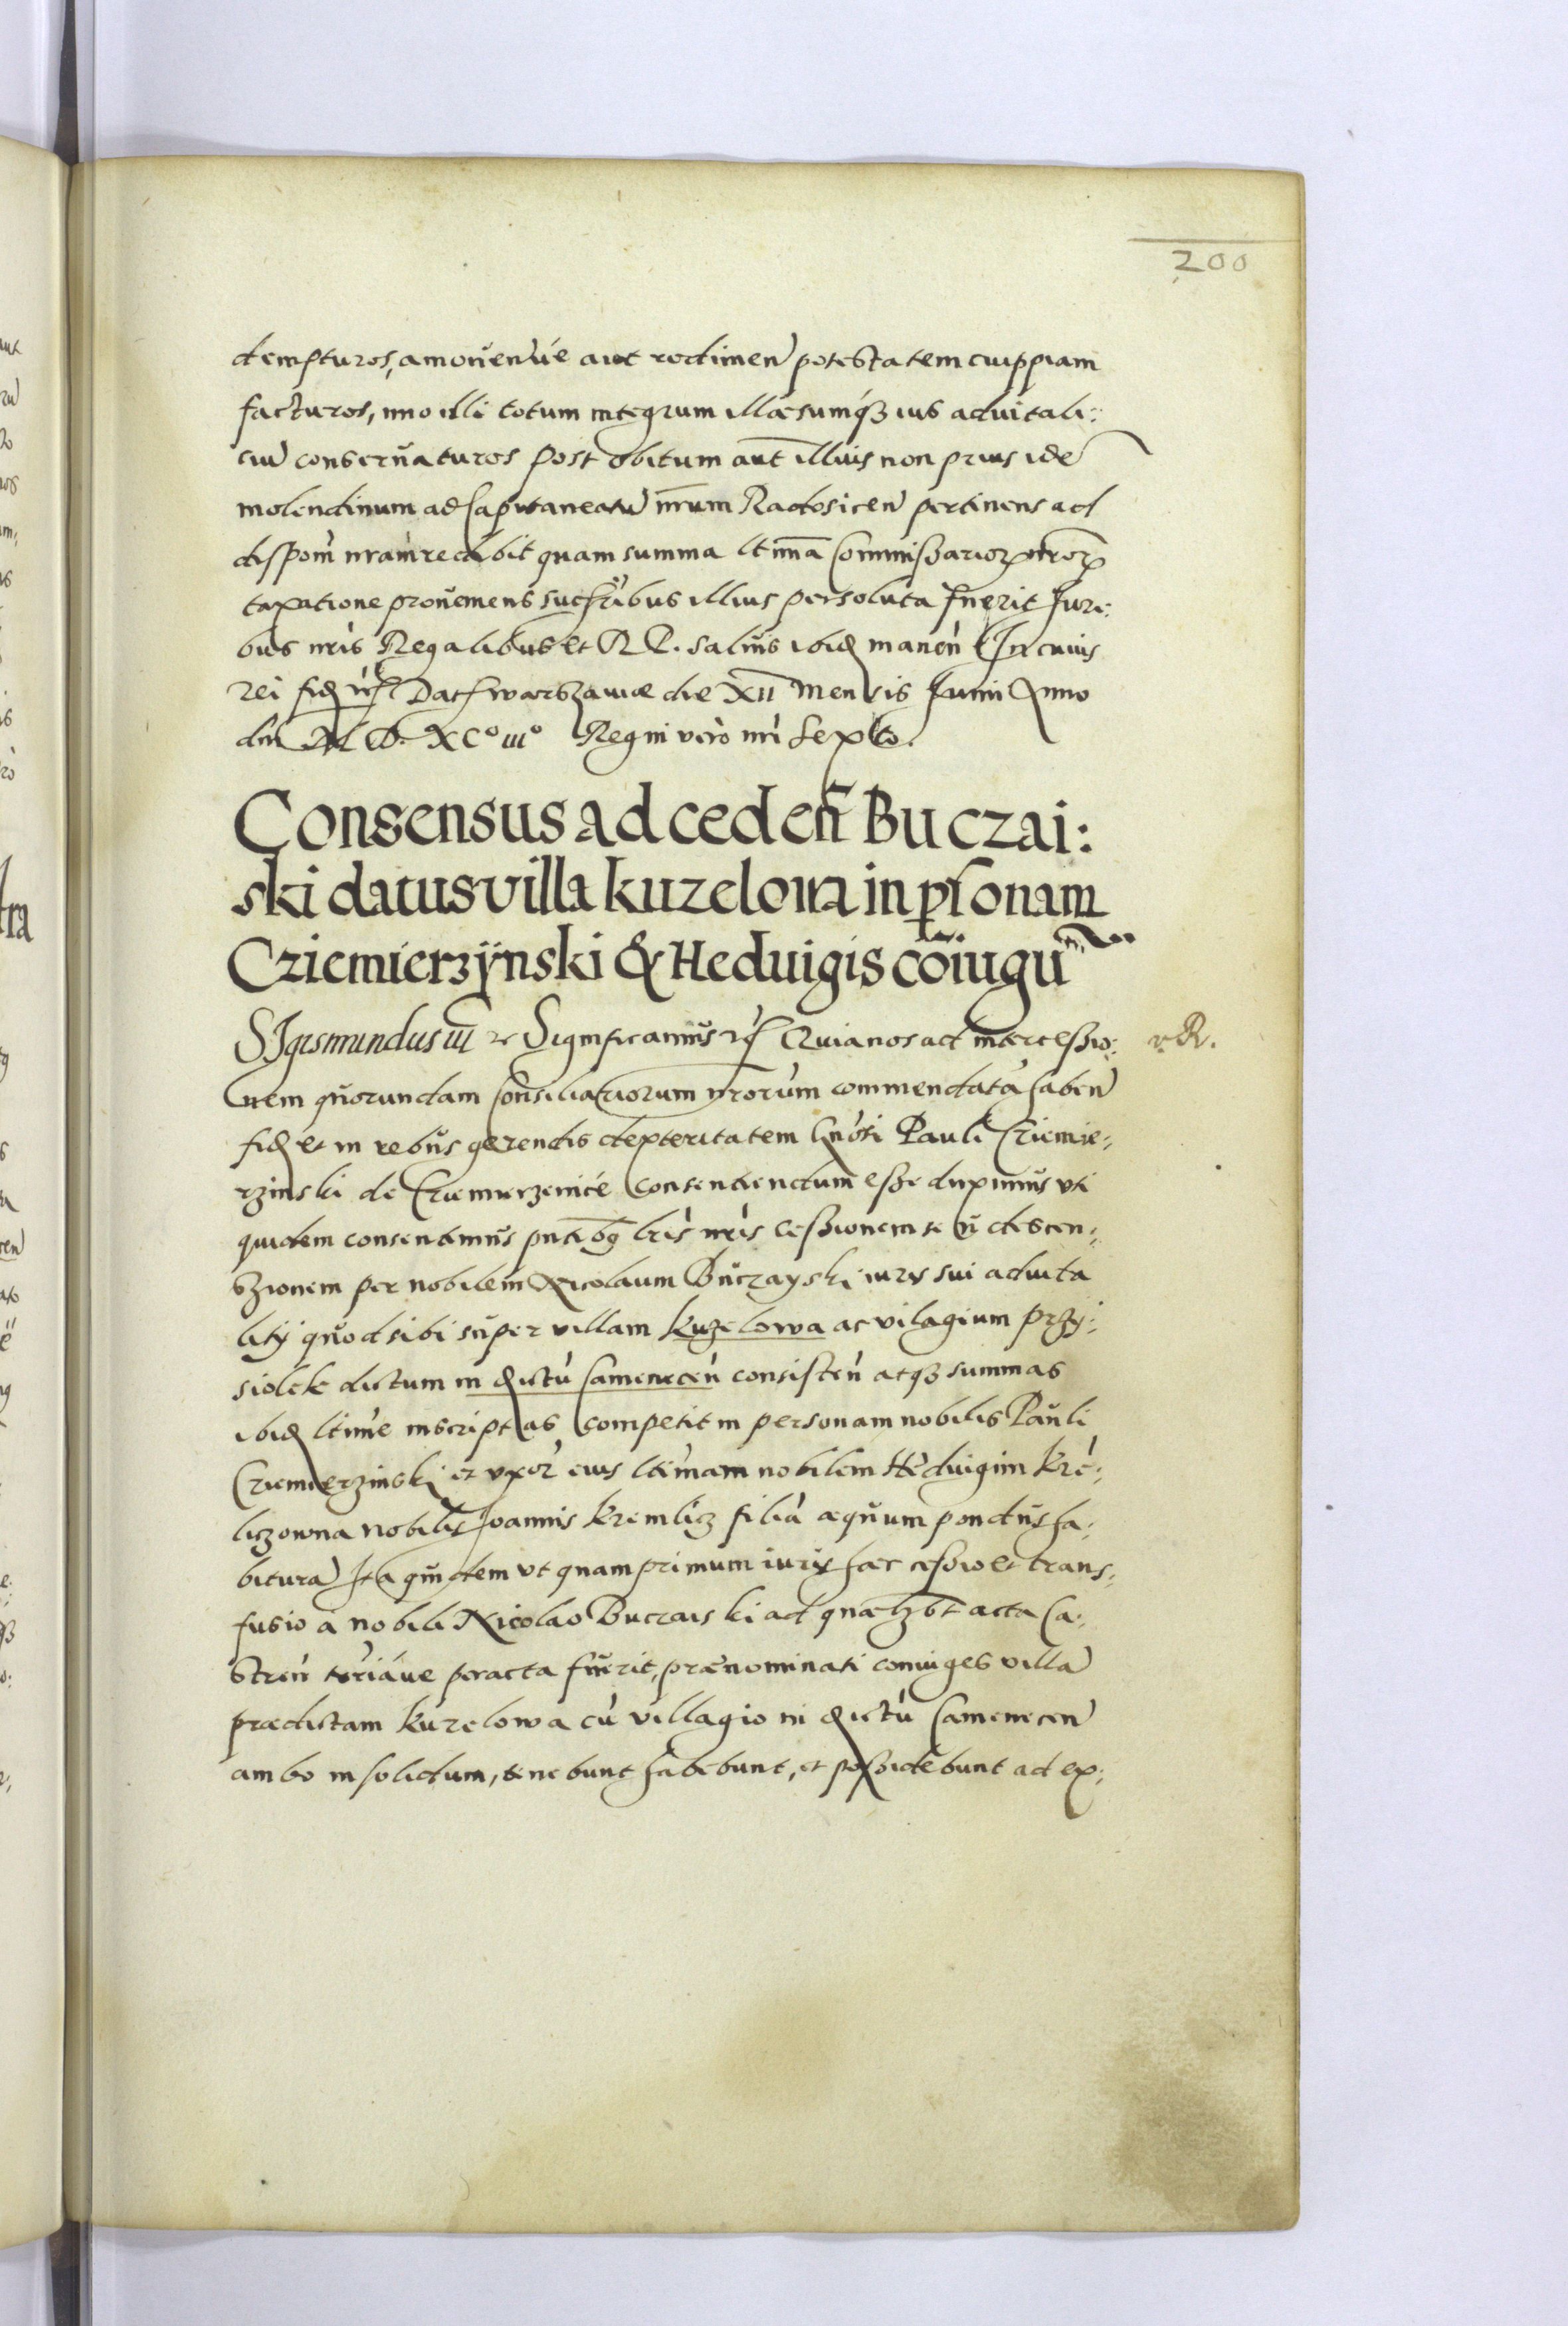 200
dempturos, amouen'ue aut redimen potestatem cuippiam
facturos, imo illi totum integrum illæsumq́ꝫ ius aduitali:
ciū conseruaturos post obitum aut̄ illius non prius idē
molendinum ad Capitaneatū nr̄um Radosicen pertinens ad
dispom̄ nr̄am redibit quam summa ltimā Commißarioꝝ nr̄oꝝ
taxatione proueniens succr̄ibus illius persoluta fuerit Juri:
bus nr̄is Regalibus et R. P. saluis ibid manen̄ In cuius
rei fid Dat Warszauiæ die XII Mensis Junii Anno
dni M. D. XCº IIIº Regni vero nr̄i Sexto.
Consensus ad ceden̄ Buczai:
ski datus villa kuzelowa in psonam
Cziemierzÿnski & Heduigis coīugū
SJgismundus III Significamus Quia nos ad intercessio:
nem quorundam Consiliariorum nr̄orum commendatā haben
fid et in rebus gerendis dexteritatem Gnōsi Pauli Cziemie:
rzinski de Cziemierzenice consentiendum eße duximus vti
quidem consentimus pn̄tibꝫ lr̄is nr̄is ceßionem seu descen:
szionem per nobilem Nicolaum Buczayski iuris sui aduita
litÿ quod sibi super villam kuzelowa ac vilagium przy:
siolek dictum in distū Camenecen̄ consisten̄ atqꝫ summas
ibid ltime inscriptas competit in personam nobilis Pauli
Cziemierzinski et vxor̄ eius ltimam nobilem Heduigim kre:
liczowna nobilis Joannis kremlicz filiā æquum pondus ha:
bitura Ita quidem vt quam primum iuris hæc ceßio et trans:
fusio a nobili Nicolao Buczaiski ad quælzbt acta Ca:
stren̄ terriáue peracta fuerit, prænominati coniuges villā
prædictam kuzelowa cū villagio in distū Camenecen
ambo in solidum, tenebunt habebunt, et poßidebunt ad ex:
R.